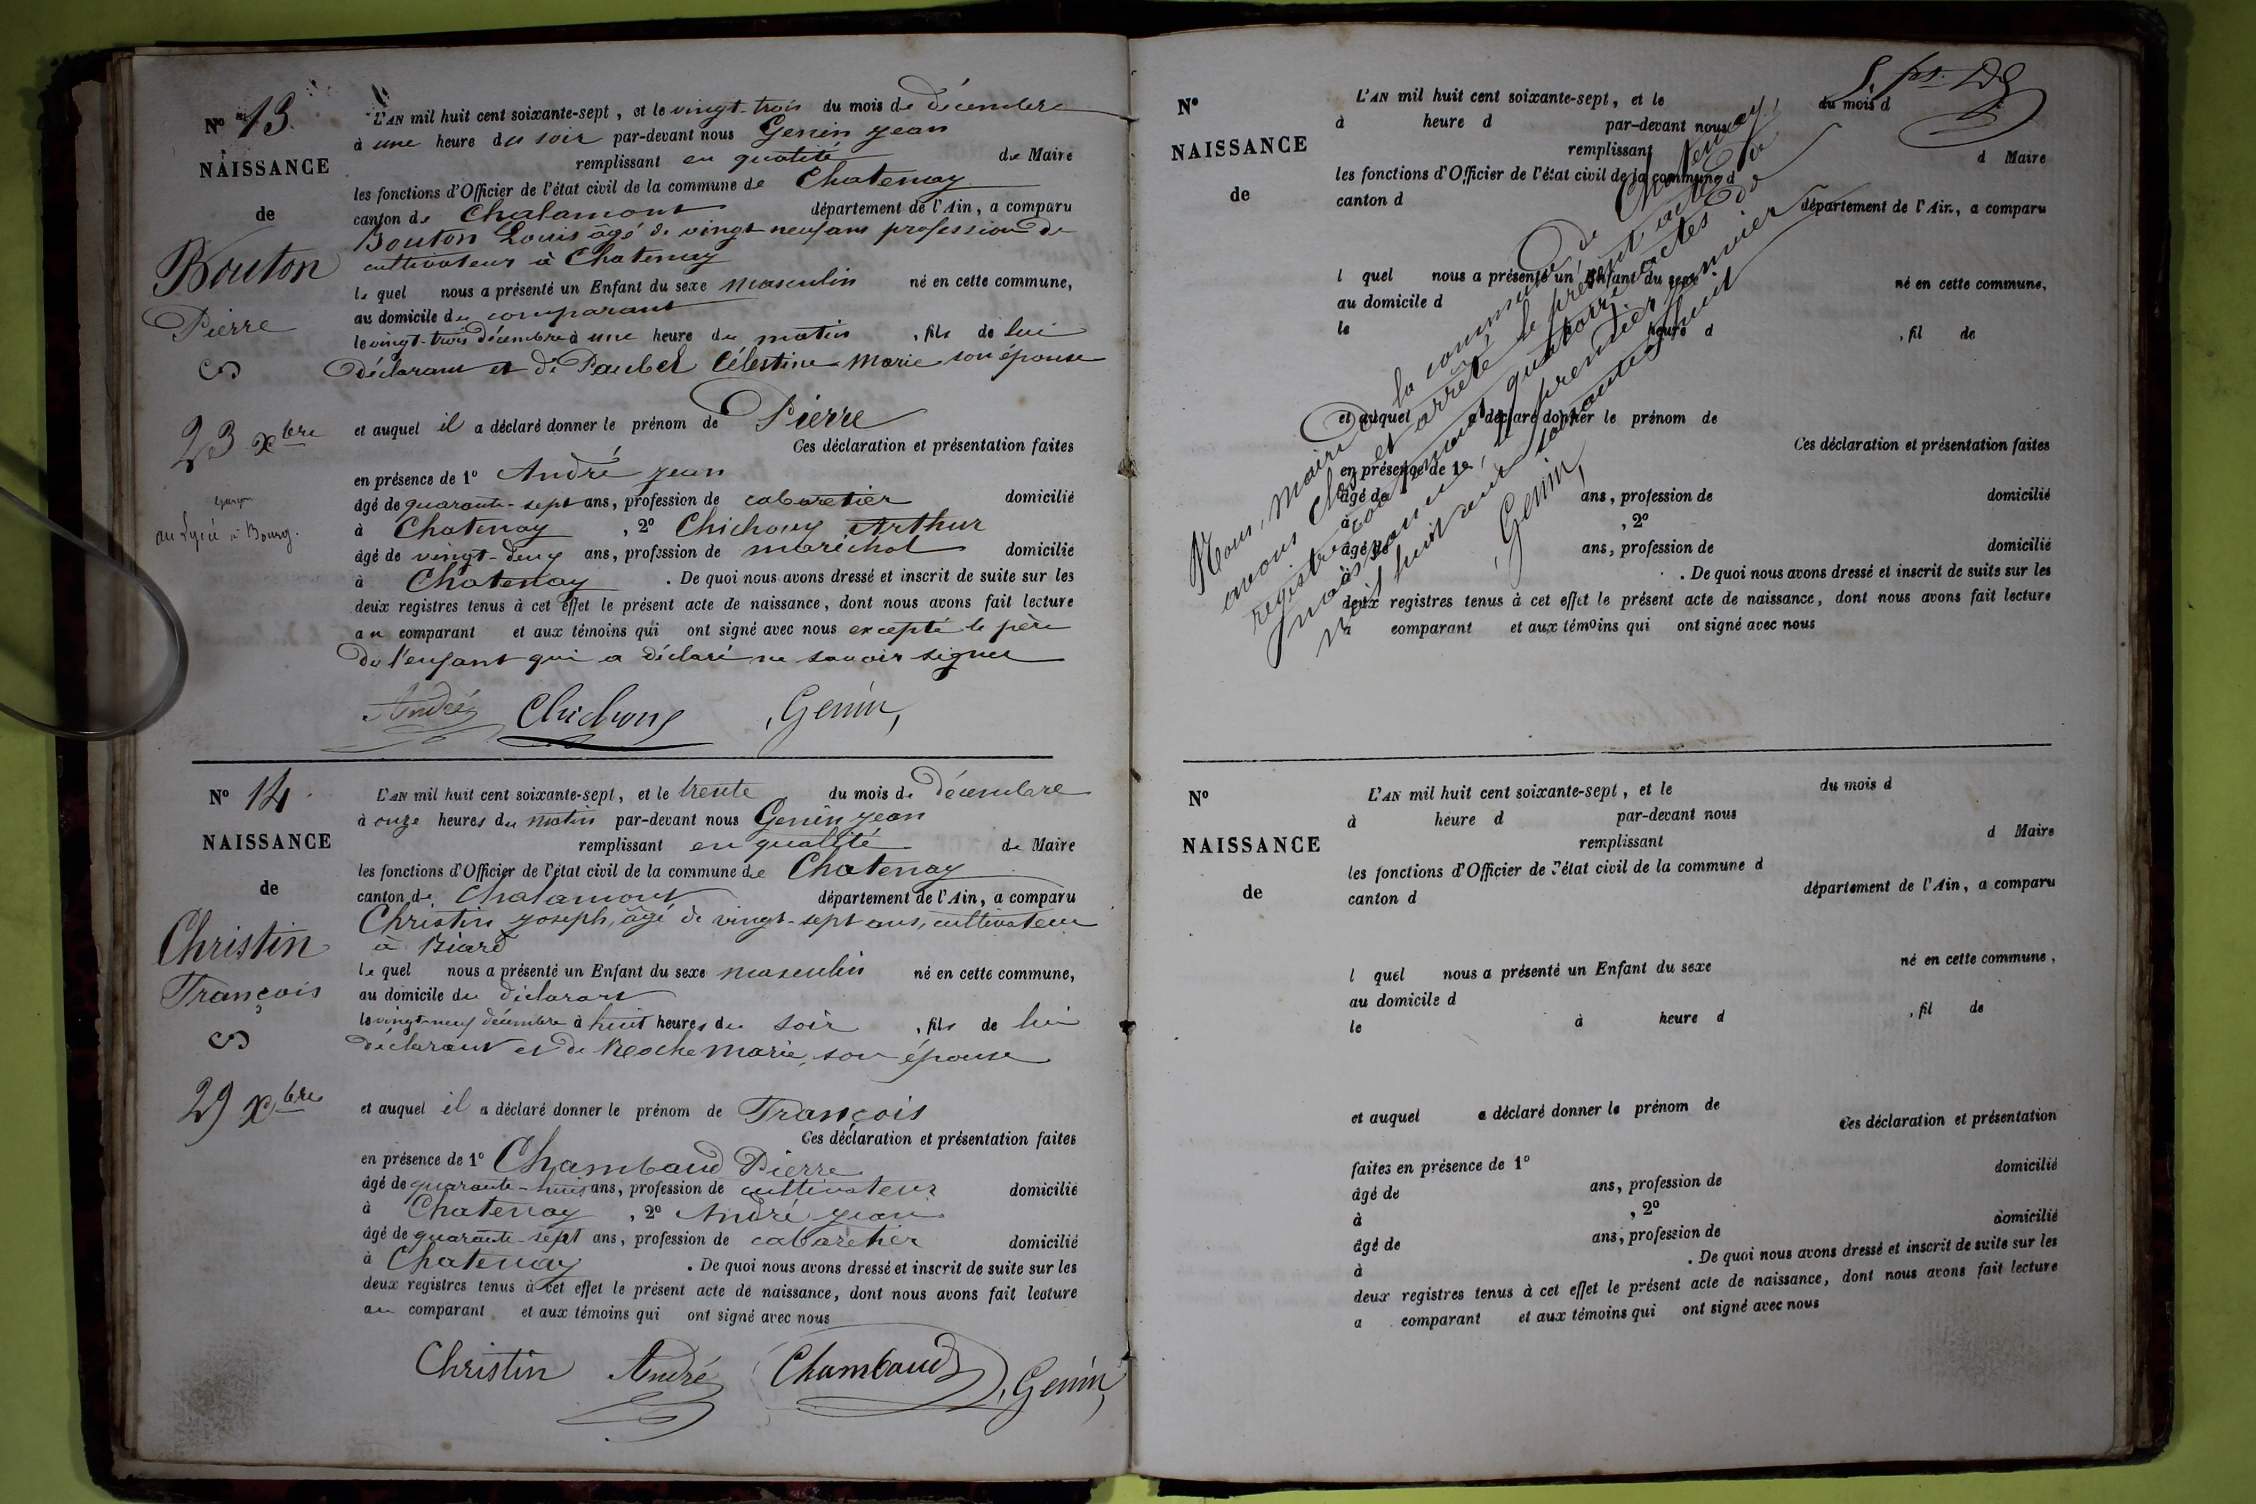 N° 13
NAISSANCE
de
Bouton
Pierre
23 xbre
garçon
au Lycée à Bourg.
L'AN mil huit cent soixante-sept, et le vingt trois du mois de décembre
à une heure du soir par-devant nous Genin Jean
remplissant en qualité de Maire
les fonctions d'Officier de l'état civil de la commune de Chatenay
canton de Chalamont département de l'Ain, a comparu
Bouton Louis âgé de vingt neuf ans profession de
cultivateur à Chatenay
le quel nous a présenté un Enfant du sexe masculin né en cette commune,
au domicile du comparant
le vingt-trois décembre à une heure du matin, fils de lui
déclarant et de Célestine Marie son épouse
et auquel il a déclaré donner le prénom de Pierre
Ces déclaration et présentation faites
en présence de 1° André Jean
âgé de quarante-sept ans, profession de cabaretier domicilié
à Chatenay, 2° Chichoux Arthur
âgé de vingt-deux ans, profession de maréchal domicilié
à Chatenay. De quoi nous avons dressé et inscrit de suite sur les
deux registres tenus à cet effet le présent acte de naissance, dont nous avons fait lecture
au comparant et aux témoins qui ont signé avec nous excepté le père
de l'enfant qui a déclaré ne savoir signer
André Chichoux Genin
N° 14
NAISSANCE
de
Christin
François
29 xbre
L'AN mil huit cent soixante-sept, et le trente du mois de décembre
à onze heures du matin par-devant nous Genin Jean
remplissant en qualité de Maire
les fonctions d'Officier de l'état civil de la commune de Chatenay
canton de Chalamont département de l'Ain, a comparu
Christin Joseph, âgé de vingt-sept ans, cultivateur
à Biard
le quel nous a présenté un Enfant du sexe masculin né en cette commune,
au domicile du déclarant
le vingt-neuf décembre à huit heures du soir, fils de lui
déclarant et de Roche Marie, son épouse
et auquel il a déclaré donner le prénom de François
Ces déclaration et présentation faites
en présence de 1° Chambaud Pierre
âgé de quarante-huit ans, profession de cultivateur domicilié
à Chatenay, 2° André Jean
âgé de quarante-sept ans, profession de cabaretier domicilié
à Chatenay. De quoi nous avons dressé et inscrit de suite sur les
deux registres tenus à cet effet le présent acte de naissance, dont nous avons fait lecture
au comparant et aux témoins qui ont signé avec nous
Christin André Chambaud Genin
N°
NAISSANCE
de
L'AN mil huit cent soixante-sept, et le du mois d
à heure d par-devant nous
remplissant d Maire
les fonctions d'Officier de l'état civil de la commune d
canton d département de l'Ain, a comparu
l quel nous a présenté un Enfant du sexe né en cette commune,
au domicile d
le à heure d , fil de
et auquel a déclaré donner le prénom de
Ces déclaration et présentation faites
en présence de 1°
âgé de ans, profession de domicilié
à , 2°
âgé de ans, profession de domicilié
à . De quoi nous avons dressé et inscrit de suite sur les
deux registres tenus à cet effet le présent acte de naissance, dont nous avons fait lecture
a comparant et aux témoins qui ont signé avec nous
Nous, Maire de la commune de Chatenay,
avons clos et arrêté le présent acte
registre contenant quatorze actes de
naissance, le premier janvier
mil huit cent soixante-huit
Genin
N°
NAISSANCE
de
L'AN mil huit cent soixante-sept, et le du mois d
à heure d par-devant nous
remplissant d Maire
les fonctions d'Officier de l'état civil de la commune d
canton d département de l'Ain, a comparu
l quel nous a présenté un Enfant du sexe né en cette commune,
au domicile d
le à heure d , fil de
et auquel a déclaré donner le prénom de
Ces déclaration et présentation
faites en présence de 1° domicilié
âgé de ans, profession de
à , 2°
âgé de ans, profession de domicilié
à . De quoi nous avons dressé et inscrit de suite sur les
deux registres tenus à cet effet le présent acte de naissance, dont nous avons fait lecture
a comparant et aux témoins qui ont signé avec nous